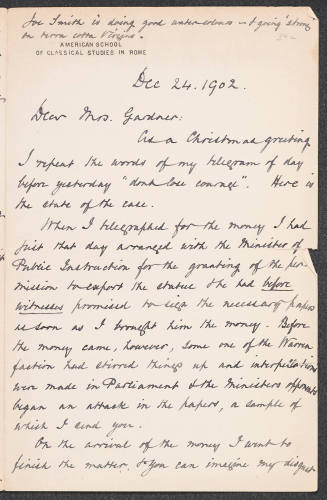 Joe Smith is doing good water colours — & going strong
on terra cotta Virgins.
AMERICAN SCHOOL
OF CLASSICAL STUDIES IN ROME
Dec 24. 1902.
Dear Mrs. Gardner:
As a Christmas greeting
I repeat the words of my telegram of day
before yesterday "dont lose courage". Here is
the state of the case.
When I telegraphed for the money I had
just that day arranged with the Minister of
Public Instruction for the granting of the per-
mission to export the statue & he had before
witnesses promised to sign the necessary papers
as soon as I brought him the money. Before
the money came, however, some one of the Warren
faction had stirred things up and interpellations
were made in Parliament & the Ministers opponents
began an attack in the papers, a sample of
which I send you.
On the arrival of the money I went to
finish the matter, & you can imagine my disgust